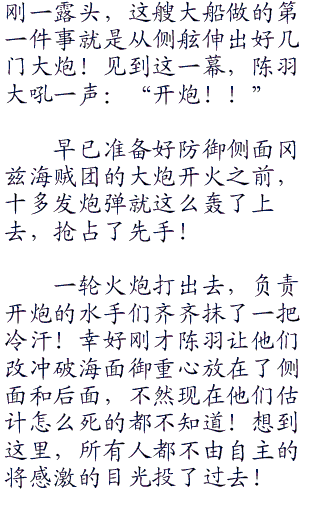 刚一露头，这艘大船做的第
一件事就是从侧舷伸出好几
门大炮！见到这一幕，陈羽
大吼一声：“开炮！！”
早已准备好防御侧面冈
兹海贼团的大炮开火之前，
十多发炮弹就这么轰了上
去，抢占了先手！
一轮火炮打出去，负责
开炮的水手们齐齐抹了一把
冷汗！幸好刚才陈羽让他们
改冲破海面御重心放在了侧
面和后面，不然现在他们估
计怎么死的都不知道！想到
这里，所有人都不由自主的
将感激的目光投了过去！